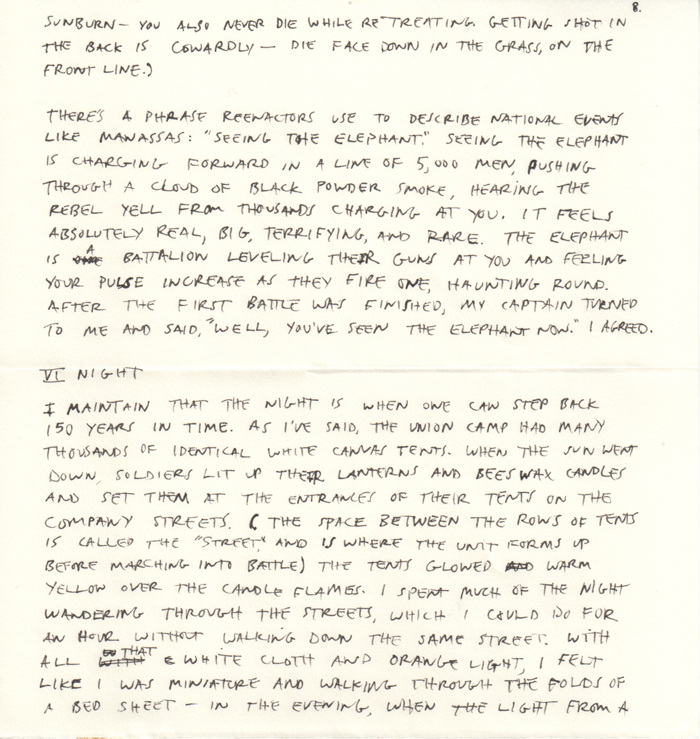 8.
SUNBURN — YOU ALSO NEVER DIE WHILE RETREATING. GETTING SHOT IN
THE BACK IS COWARDLY — DIE FACE DOWN IN THE GRASS, ON THE
FRONT LINE.)
THERE'S A PHRASE REENACTORS USE TO DESCRIBE NATIONAL EVENTS
LIKE MANASSAS: "SEEING THE ELEPHANT." SEEING THE ELEPHANT
IS CHARGING FORWARD IN A LINE OF 5,000 MEN, PUSHING
THROUGH A CLOUD OF BLACK POWDER SMOKE, HEARING THE
REBEL YELL FROM THOUSANDS CHARGING AT YOU. IT FEELS
ABSOLUTELY REAL, BIG, TERRIFYING, AND RARE. THE ELEPHANT
IS A BATTALION LEVELING THEIR GUNS AT YOU AND FEELING
YOUR PULSE INCREASE AS THEY FIRE ONE, HAUNTING ROUND.
AFTER THE FIRST BATTLE WAS FINISHED, MY CAPTAIN TURNED
TO ME AND SAID, "WELL, YOU'VE SEEN THE ELEPHANT NOW." I AGREED.
VI NIGHT
I MAINTAIN THAT THE NIGHT IS WHEN ONE CAN STEP BACK
150 YEARS IN TIME. AS I'VE SAID, THE UNION CAMP HAD MANY
THOUSANDS OF IDENTICAL WHITE CANVAS TENTS. WHEN THE SUN WENT
DOWN, SOLDIERS LIT UP THEIR LANTERNS AND BEESWAX CANDLES
AND SET THEM AT THE ENTRANCES OF THEIR TENTS ON THE
COMPANY STREETS. (THE SPACE BETWEEN THE ROWS OF TENTS
IS CALLED THE "STREET" AND IS WHERE THE UNIT FORMS UP
BEFORE MARCHING INTO BATTLE) THE TENTS GLOWED WARM
YELLOW OVER THE CANDLE FLAMES. I SPENT MUCH OF THE NIGHT
WANDERING THROUGH THE STREETS, WHICH I COULD DO FOR
AN HOUR WITHOUT WALKING DOWN THE SAME STREET. WITH
ALL THAT WHITE CLOTH AND ORANGE LIGHT, I FELT
LIKE I WAS MINIATURE AND WALKING THROUGH THE FOLDS OF
A BED SHEET — IN THE EVENING, WHEN THE LIGHT FROM A